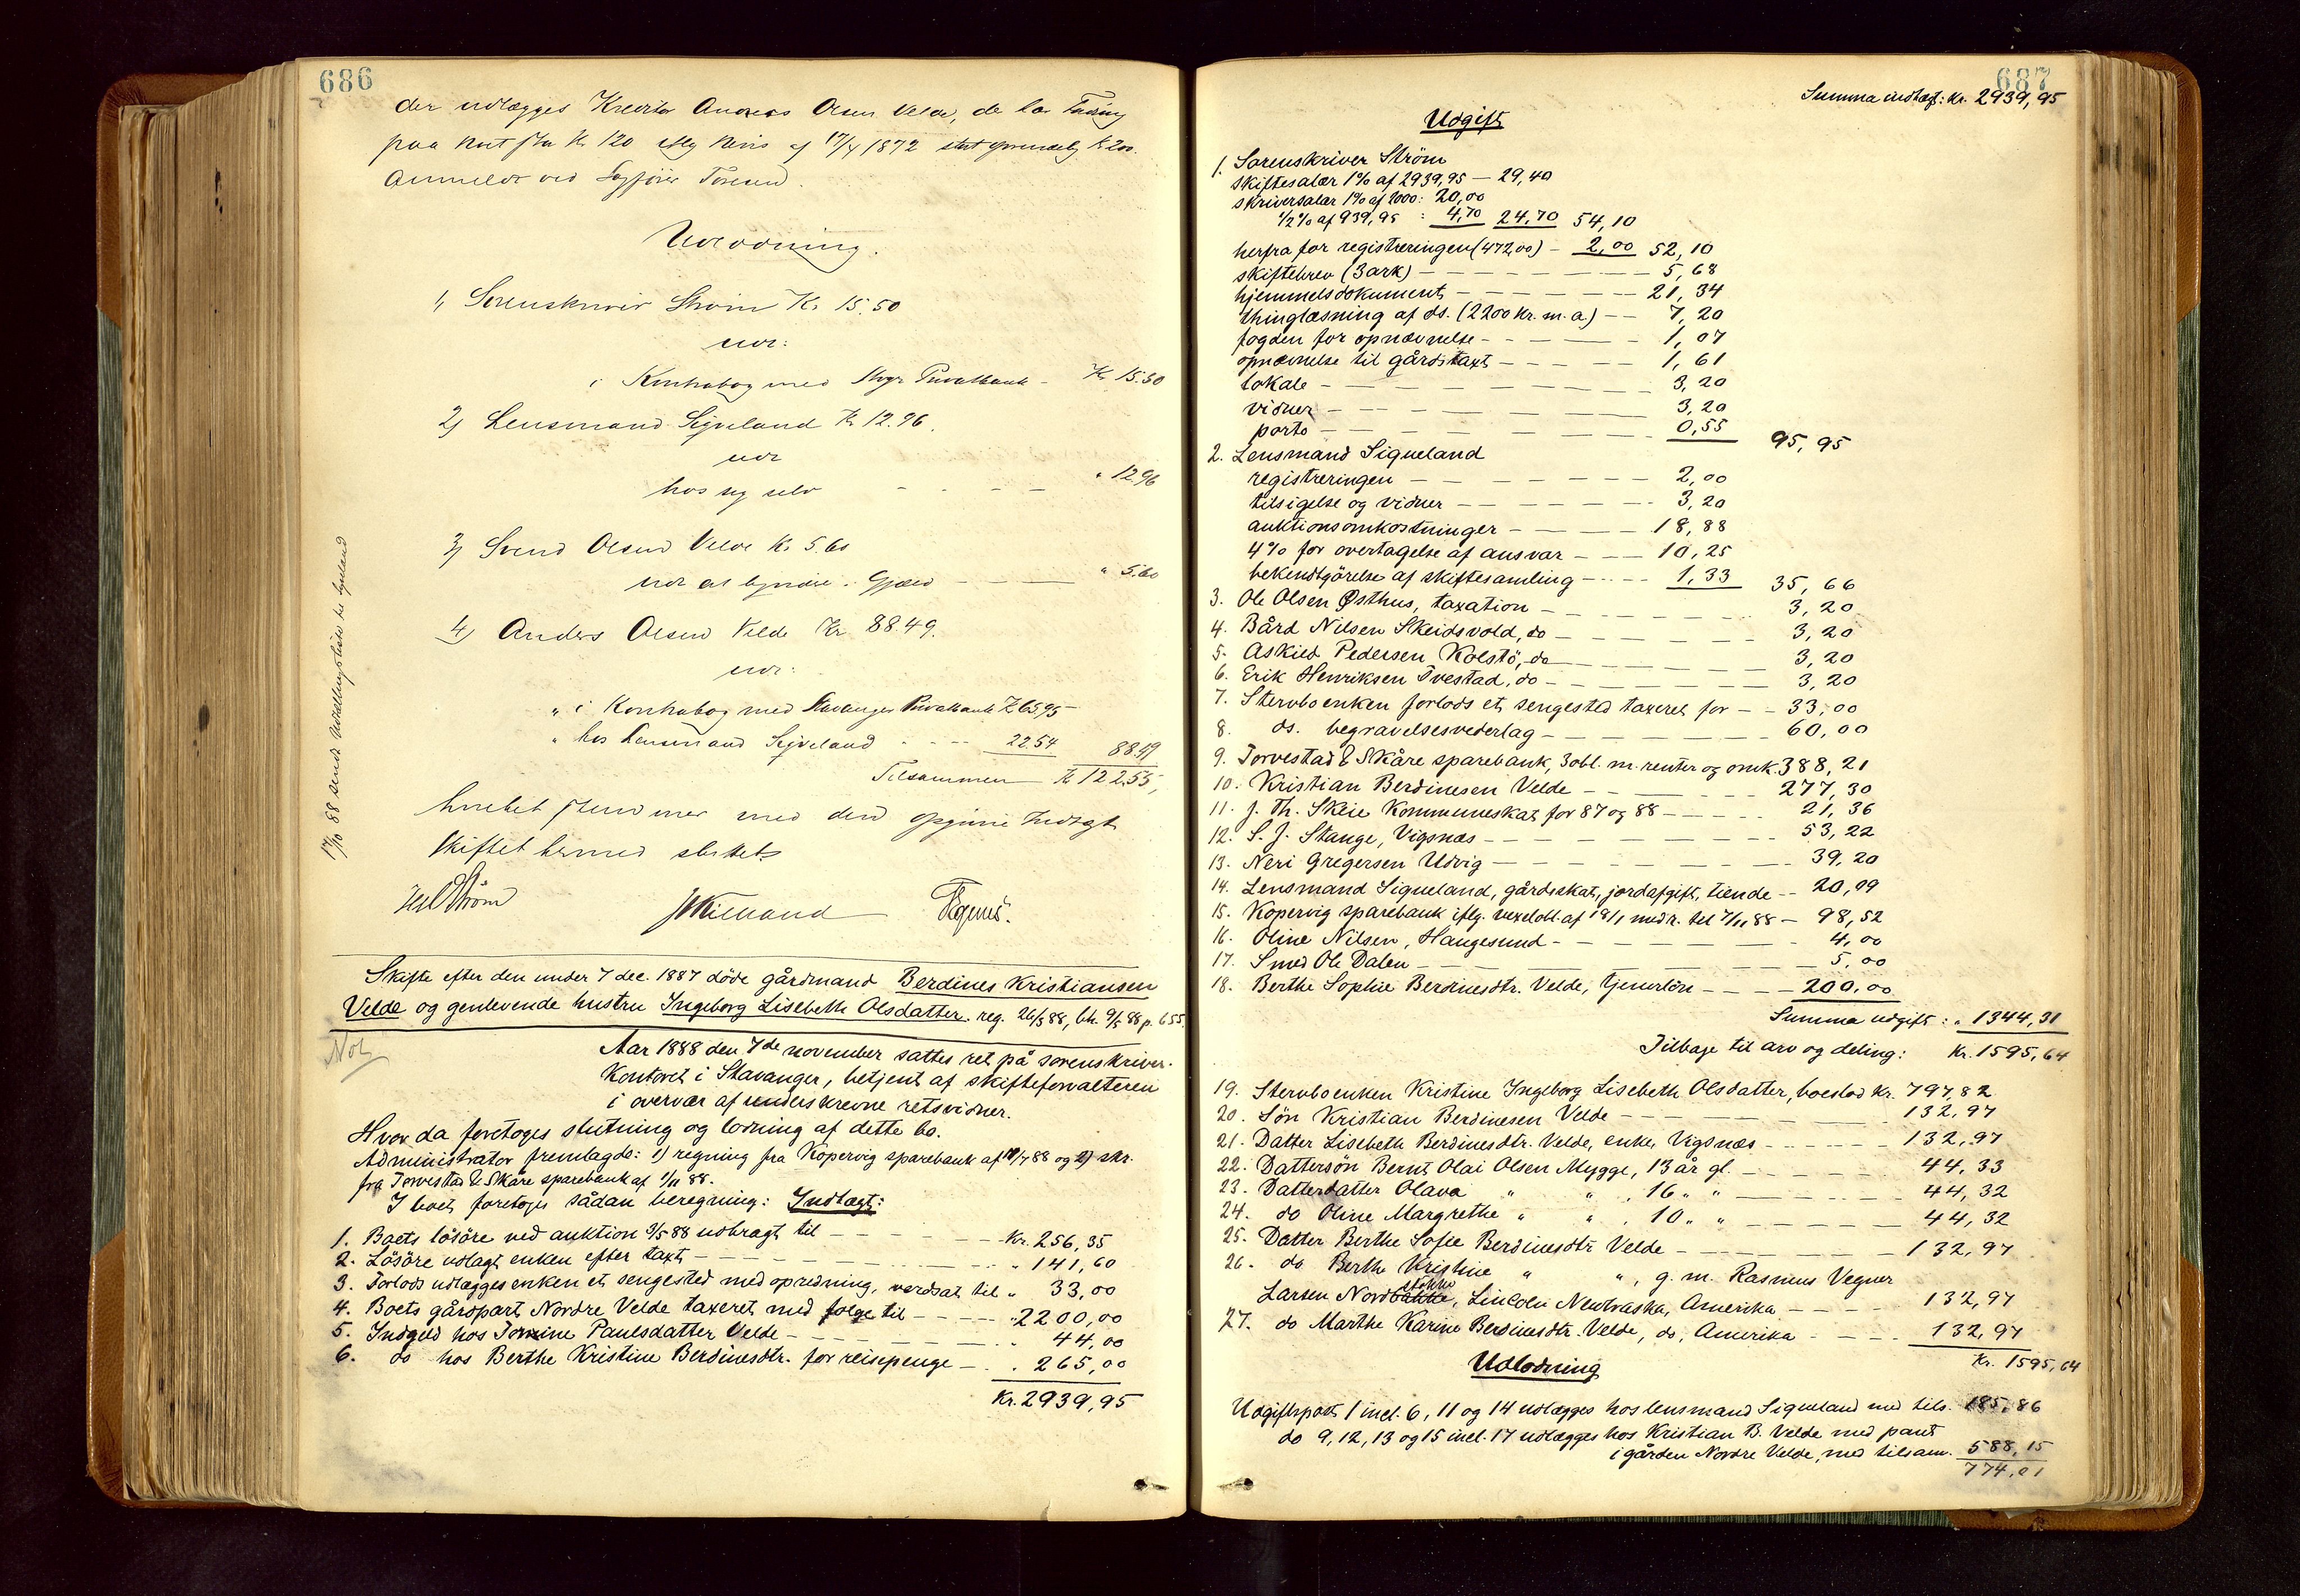 686
der udlægges Kreditor Anders Olsen Velde, de
paa K. 120 iflg af 17/4 1872 200.
Anmeldt ved Sagfører
Udlodning.
1, Sorenskriver Strøm Kr 15.50
udl:
i Kontrabog med Privatbank - Kr 15.50
2) Lensmand Sigveland Kr 12.96.
udl
hos sig selv - - - - " 12.96
3) Svend Olsen Velde Kr 5.60
udl Gjæld - - - " 5.60
4) Anders Olsen Velde Kr 88.49.
udl:
" i Kontrabog med Stavanger Privatbank K 65,95
" hos Lensmand Sigveland - - - 22.54 88.49
Tilsammen K 122.55,
hvilket stemmer med den opgivne Indtægt
Skiftet hermed sluttet.
17/10 88 sendt til Sigveland
Skifte efter den under 7 dec. 1887 döde gårdmand Berdines Kristiansen
Velde og genlevende hustru Ingeborg Lisebeth Olsdatter. reg. 26/3 88, bh. 9/5 88 p. 655.
Not
Aar 1888 den 7de november sattes ret på sorenskriver-
kontoret i Stavanger, betjent af skifteforvalteren
i overvær af underskrevne retsvidner.
Hvor da foretoges slutning og lodning af dette bo.
Administrator fremlagde: 1) regning fra Kopervig sparebank af 19/7 88 og 2) skr.
fra Torvestad & Skåre sparebank af 1/11 88.
I boet foretoges sådan beregning: Indtægt:
1. Boets lösöre ved auktion 3/5 88 udbragt til - - - Kr. 256,35
2. Lösöre udlagt enken efter taxt - - - " 141,60
3. Forlods udlægges enken et sengested med opredning, verdsat til " 33,00
4. Boets gårdpart Nordre Velde taxeret med følge til - - - " 2200,00
5. Indgæld hos Tomine Paulsdatter Velde - - - " 44,00
6. do hos Berthe Kristine Berdinesdtr. for reisepenge - . " 265,00
Kr. 2939,95
687
Summa indtægt: Kr. 2939,95
Udgift
1. Sorenskriver Ström
skiftesalær 1% af 2939,95 — 29,40
skriversalær 1% af 2000: 20,00
1/2% af 939,95 : 4,70 24,70 54,10
herfra for registreringen (472,00) - 2,00 52,10
skiftebrev (3 ark) - - - 5,68
hjemmelsdokument - - - 21,34
thinglæsning af ds. (2200 kr. m. a.) - - 7,20
fogden for opnævnelse - - - 1,07
opnævnelse til gårdstaxt - - - 1,61
lokale - - - 3,20
vidner - - - 3,20
porto - - - 0,55 95,95
2. Lensmand Sigveland
registreringen - - - 2,00
tilsigelse og vidner - - - 3,20
auktionsomkostninger - - - 18,88
4% for overtagelse af ansvar - - - 10,25
bekendtgörelse af skiftesamling - - - 1,33 35,66
3. Ole Olsen Østhus, taxation - - - 3,20
4. Bård Nilsen Skeidsvold, do - - - 3,20
5. Askild Pedersen Kolstö, do - - - 3,20
6. Erik Henriksen Tvestad, do - - - 3,20
7. Stervboenken forlods et sengested taxeret for - - 33,00
8. ds. begravelsesvederlag - - - 60,00
9. Torvestad & Skåre sparebank, 3 obl. m. renter og omk. 388,21
10. Kristian Berdinesen Velde - - - 277,30
11. J. Th. Skeie Kommuneskat for 87 og 88 - - - 21,36
12. S. J. Stange, Vigsnæs - - - 53,22
13. Neri Gregersen Udvig - - - 39,20
14. Lensmand Sigveland, gårdsskat, jordafgift, tiende - - 20,09
15. Kopervig sparebank iflg. vexelobl. af 18/1 med r. til 7/11 88 - 98,52
16. Oline Nilsen, Haugesund - - - 4,00
17. Smed Ole Dalen - - - 5,00
18. Berthe Sophie Berdinesdtr. Velde, tjenerlön - - - 200,00
Summa udgift : " 1344,31
Tilbage til arv og deling: Kr. 1595,64
19. Stervboenken Kristine Ingeborg Lisebeth Olsdatter, boeslod Kr. 797,82
20. Sön Kristian Berdinesen Velde - - - 132,97
21. Datter Lisebeth Berdinesdtr. Velde, enke, Vigsnæs - - - 132,97
22. Dattersön Bernt Olai Olsen Mygge, 13 år gl. - - - 44,33
23. Datterdatter Olava " " , 16 " " - - - 44,32
24. do Oline Margrethe " " , 10 " " - - - 44,32
25. Datter Berthe Sofie Berdinesdtr Velde - - - 132,97
26. do Berthe Kristine " " , g. m. Rasmus Vegner
Larsen Nordstokke, Lincoln Newbraska, Amerika - - - 132,97
27. do Marthe Karine Berdinesdtr. Velde, do, Amerika - - - 132,97
Kr. 1595,64
Udlodning
Udgiftspost 1 incl. 6, 11 og 14 udlægges hos lensmand Sigveland med tils. 185,86
do 9, 12, 13 og 15 incl. 17 udlægges hos Kristian B. Velde med pant
i gården Nordre Velde, med tilsam. 588,15
774,01